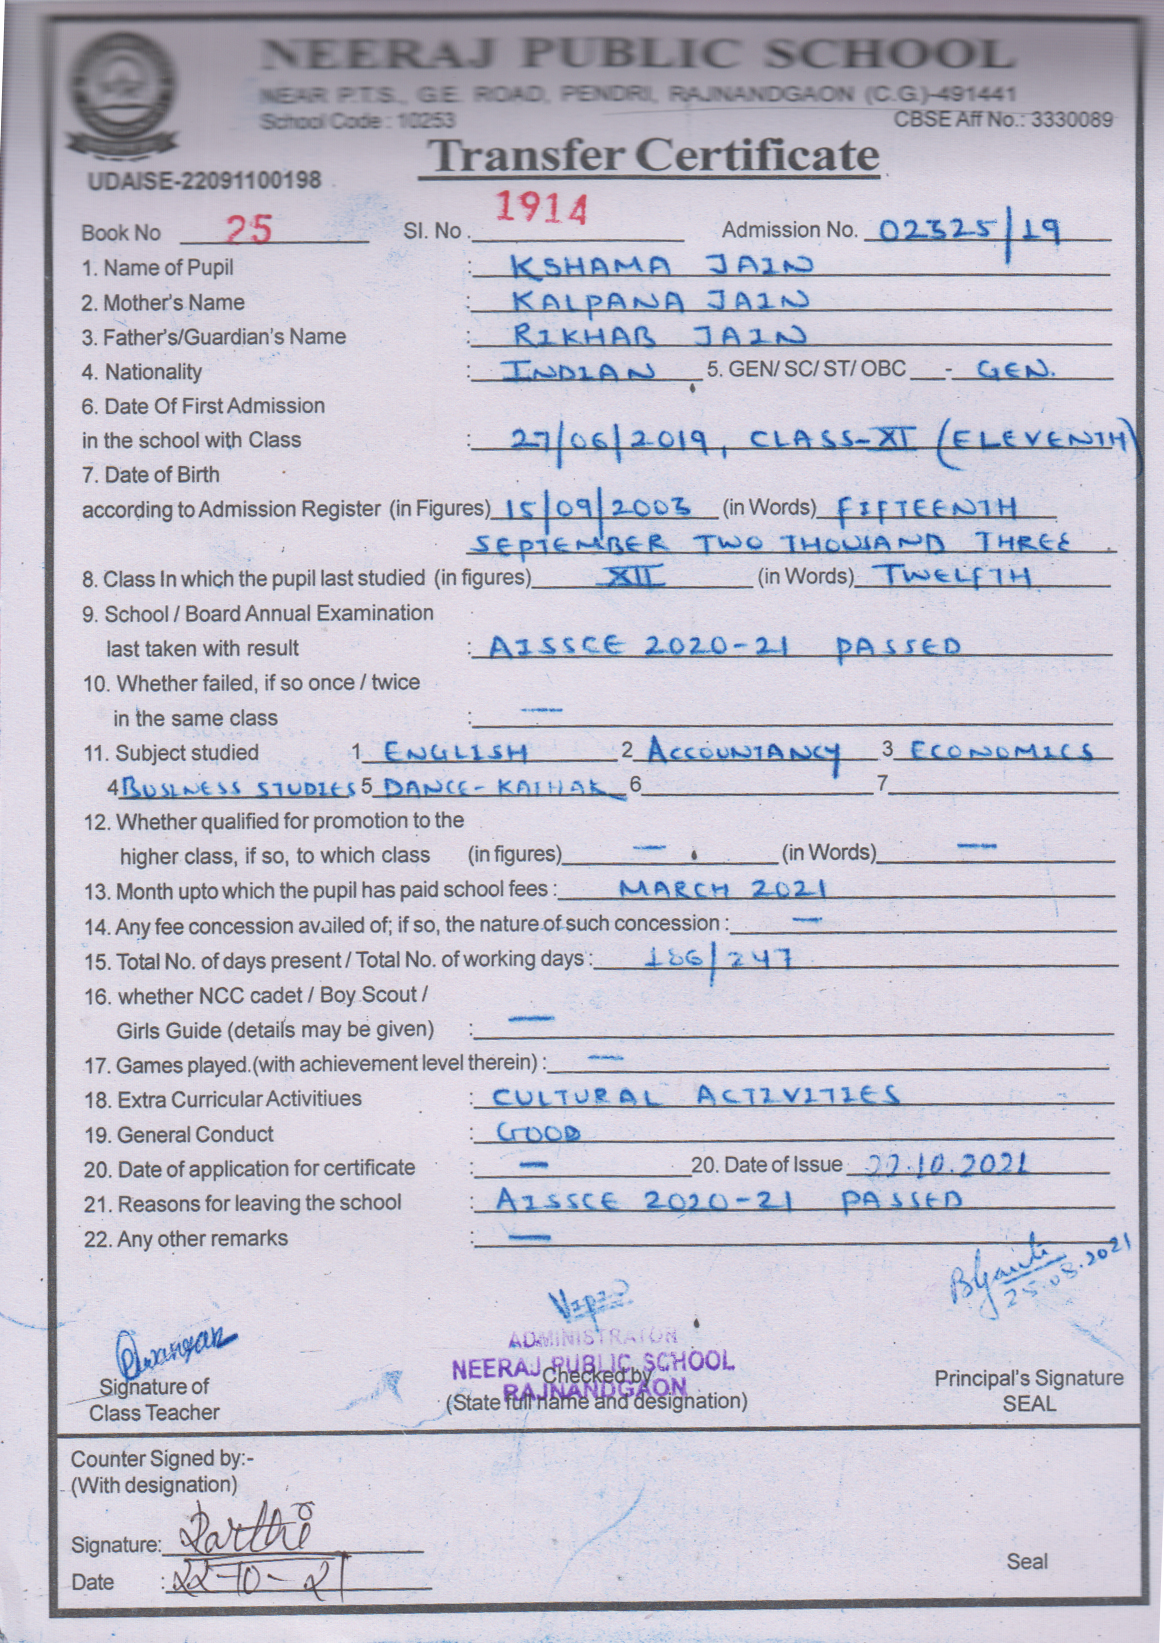 NEERAJ PUBLIC SCHOOL
NEAR P.T.S., G.E. ROAD, PENDRI, RAJNANDGAON (C.G.)-491441
School Code : 10253 CBSE Aff No.: 3330089
Transfer Certificate
UDAISE-22091100198
Book No 25 Sl. No. 1914 Admission No. 02325/19
1. Name of Pupil : KSHAMA JAIN
2. Mother's Name : KALPANA JAIN
3. Father's/Guardian's Name : RIKHAB JAIN
4. Nationality : INDIAN 5. GEN/ SC/ ST/ OBC - GEN.
6. Date Of First Admission
in the school with Class : 27/06/2019, CLASS-XI (ELEVENTH)
7. Date of Birth
according to Admission Register (in Figures) 15/09/2003 (in Words) FIFTEENTH
SEPTEMBER TWO THOUSAND THREE
8. Class In which the pupil last studied (in figures) XII (in Words) TWELFTH
9. School / Board Annual Examination
last taken with result : AISSCE 2020-21 PASSED
10. Whether failed, if so once / twice
in the same class : —
11. Subject studied 1 ENGLISH 2 ACCOUNTANCY 3 ECONOMICS
4 BUSINESS STUDIES 5 DANCE-KATHAK 6 7
12. Whether qualified for promotion to the
higher class, if so, to which class (in figures) — (in Words) —
13. Month upto which the pupil has paid school fees : MARCH 2021
14. Any fee concession availed of; if so, the nature of such concession : —
15. Total No. of days present / Total No. of working days : 186/247
16. whether NCC cadet / Boy Scout /
Girls Guide (details may be given) : —
17. Games played.(with achievement level therein) : —
18. Extra Curricular Activitiues : CULTURAL ACTIVITIES
19. General Conduct : GOOD
20. Date of application for certificate : — 20. Date of Issue 22.10.2021
21. Reasons for leaving the school : AISSCE 2020-21 PASSED
22. Any other remarks : —
25.08.2021
ADMINISTRATOR
NEERAJ PUBLIC SCHOOL
RAJNANDGAON
Signature of
Class Teacher
Checked by
(State full name and designation)
Principal's Signature
SEAL
Counter Signed by:-
(With designation)
Signature:
Date : 22-10-21
Seal